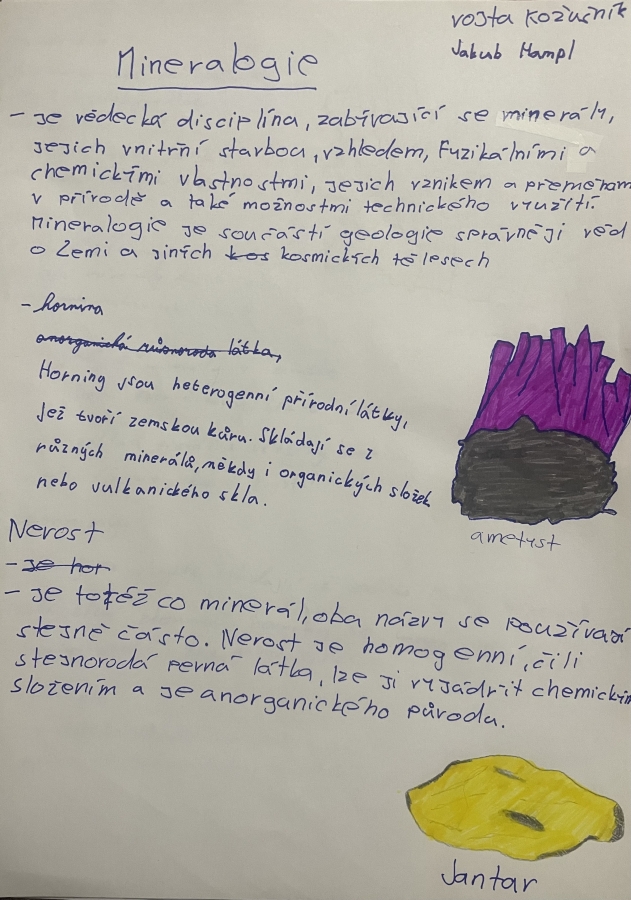 Vojta Kožušník
Jakub Hampl
Mineralogie
- je vědecká disciplína, zabívající se minerály,
jejich vnitřní starbou, vzhledem, Fuzikálními a
chemickými vlastnostmi, jejich vznikem a přeměnam
v přírodě a také možnostmi technického využití.
Mineralogie je součástí geologie správněji věd
o Zemi a jiných kos kosmických tělesech
- hornina
anorganická různoroda látka,
Horniny jsou heterogenní přírodní látky,
jež tvoří zemskou kůru. Skládají se z
různých minerálů, někdy i organických složek
nebo vulkanického skla.
ametyst
Nerost
- je hor
- je totéž co minerál, oba názvy se používají
stejně často. Nerost je homogenní, čili
stejnorodá pevná látka, lze ji vyjádřit chemickým
složením a je anorganického původu.
Jantar